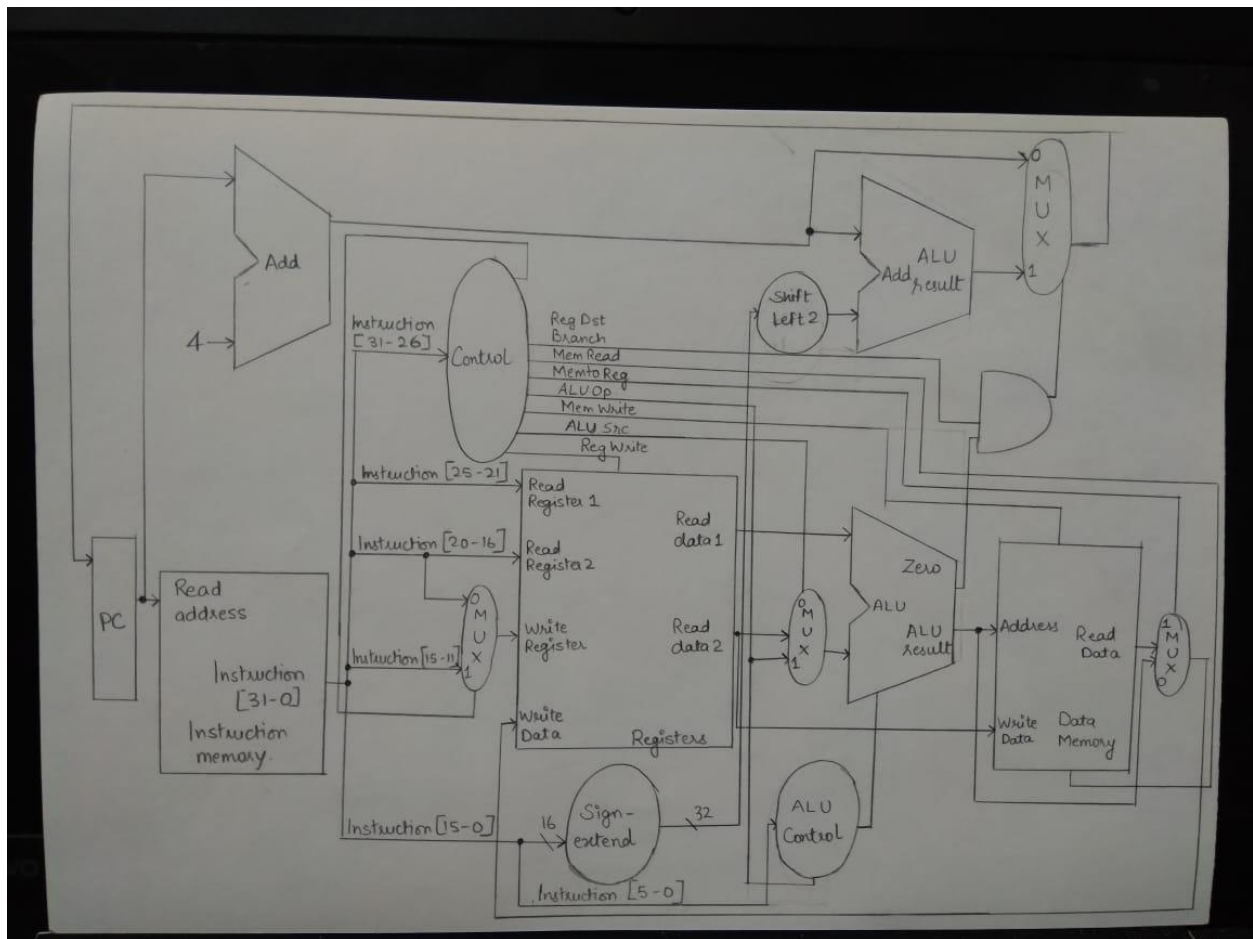 0
M
U
X
1
Add
4
ALU
Add result
Shift
Left 2
Instruction
[31-26]
Control
Reg Dst
Branch
Mem Read
Memto Reg
ALU Op
Mem Write
ALU Src
Reg Write
Instruction [25-21]
Read
Register 1
Instruction [20-16]
Read
Register 2
0
M
U
X
1
Instruction [15-11]
Write
Register
Write
Data
Registers
Read
data 1
Read
data 2
PC
Read
address
Instruction
[31-0]
Instruction
memory.
0
M
U
X
1
Zero
ALU
ALU
result
Address
Read
Data
Write
Data
Data
Memory
1
M
U
X
0
Instruction [15-0]
16
Sign-
extend
32
ALU
Control
Instruction [5-0]